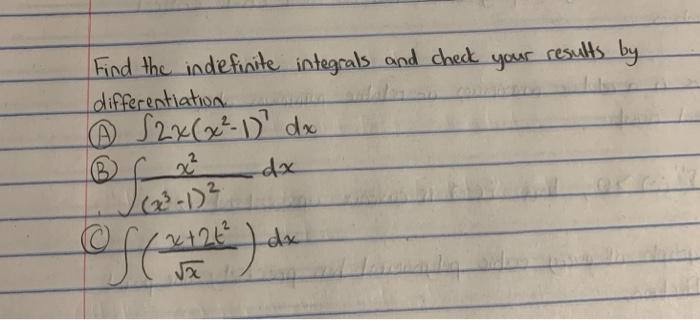 Find the indefinite integrals and check your results by
differentiation
Ⓐ ∫2x(x²-1)⁷ dx
Ⓑ ∫ x²/(x³-1)² dx
Ⓒ ∫ (x+2t²/√x) dx